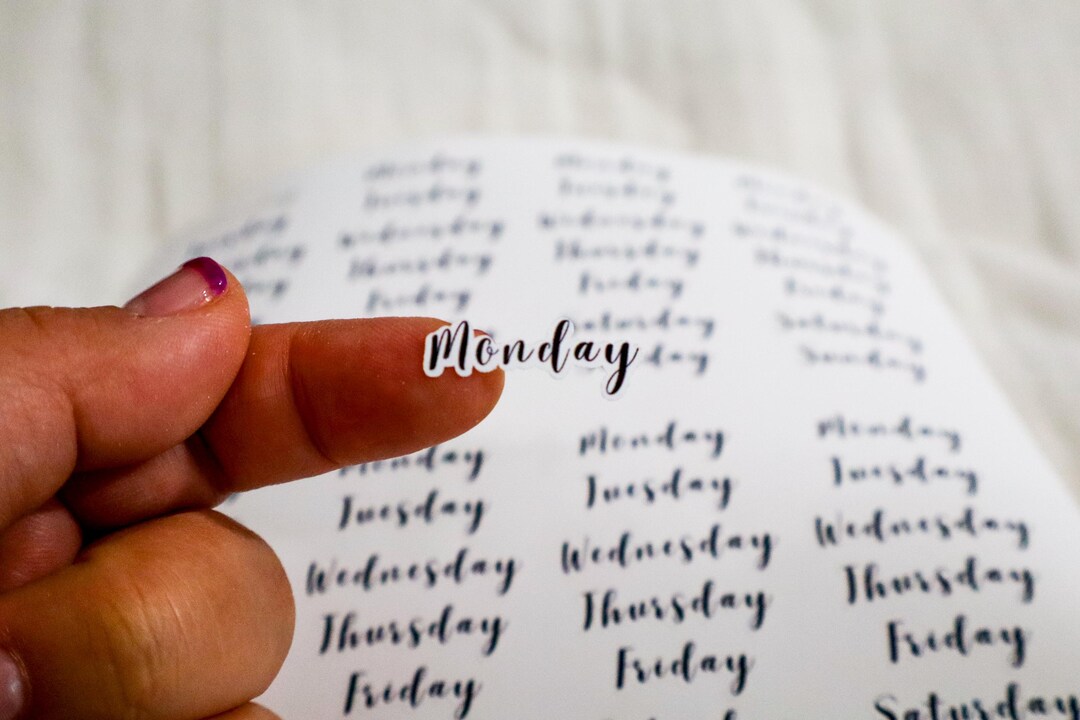 Monday
Tuesday
Wednesday
Thursday
Friday
Monday
Tuesday
Wednesday
Thursday
Friday
Saturday
Monday
Tuesday
Wednesday
Thursday
Friday
Saturday
Sunday
Monday
Monday
Tuesday
Wednesday
Thursday
Friday
Monday
Tuesday
Wednesday
Thursday
Friday
Monday
Tuesday
Wednesday
Thursday
Friday
Saturday